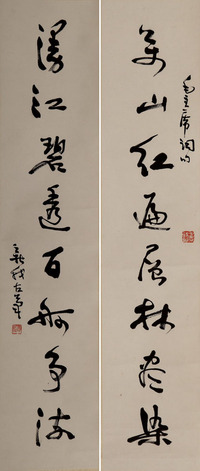 萬山红遍层林尽染
毛主席词句
漫江碧透百舸争流
新我左笔